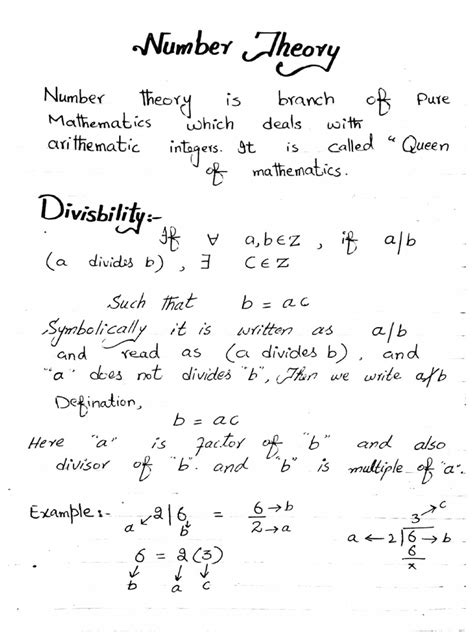 Number Theory
Number theory is branch of Pure
Mathematics which deals with
arithematic integers. It is called "Queen
of mathematics.
Divisbility:-
If ∀ a,b∈Z , if a/b
(a divides b) , ∃ C∈Z
Such that b = ac
Symbolically it is written as a/b
and read as (a divides b), and
"a" does not divides "b", Then we write a∤b
Defination,
b = ac
Here "a" is factor of "b" and also
divisor of "b". and "b" is multiple of "a".
Example:- 2|6 = 6/2
a b
6→b
2→a
6 = 2(3)
b a c
3→c
a ← 2|6 → b
6
x